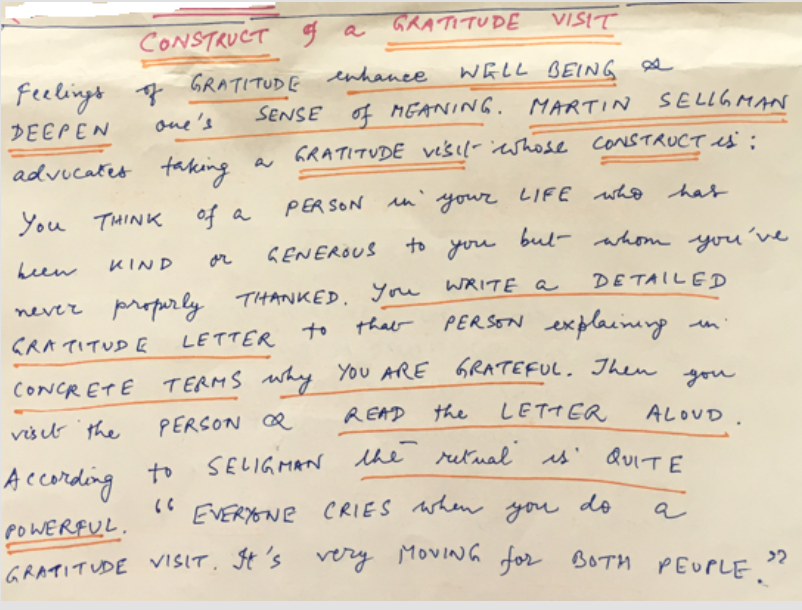 CONSTRUCT of a GRATITUDE VISIT
Feelings of GRATITUDE enhance WELL BEING &
DEEPEN one's SENSE of MEANING. MARTIN SELIGMAN
advocates taking a GRATITUDE visit whose CONSTRUCT is:
You THINK of a PERSON in your LIFE who has
been KIND or GENEROUS to you but whom you've
never properly THANKED. You WRITE a DETAILED
GRATITUDE LETTER to that PERSON explaining in
CONCRETE TERMS why YOU ARE GRATEFUL. Then you
visit the PERSON & READ the LETTER ALOUD.
According to SELIGMAN the ritual is QUITE
POWERFUL. "EVERYONE CRIES when you do a
GRATITUDE VISIT. It's very MOVING for BOTH PEOPLE."